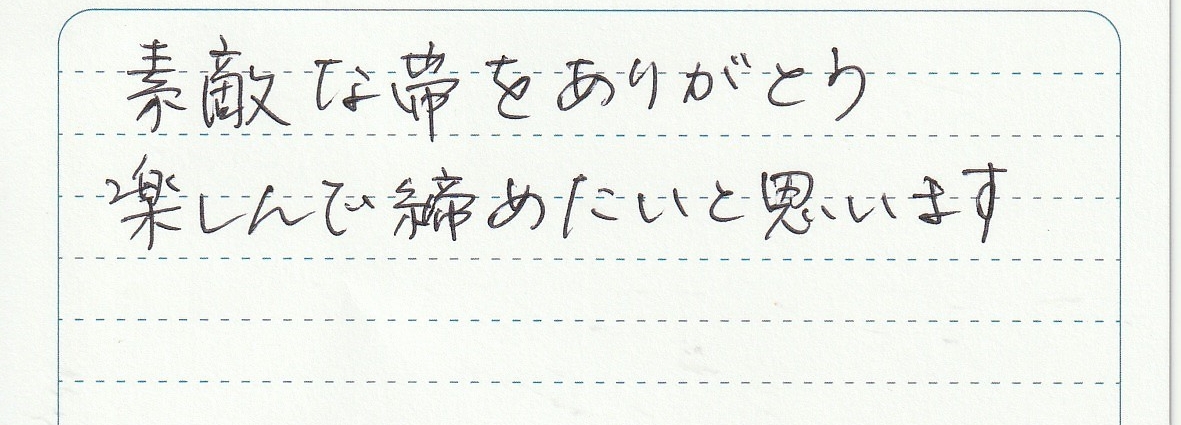 素敵な帯をありがとう
楽しんで締めたいと思います